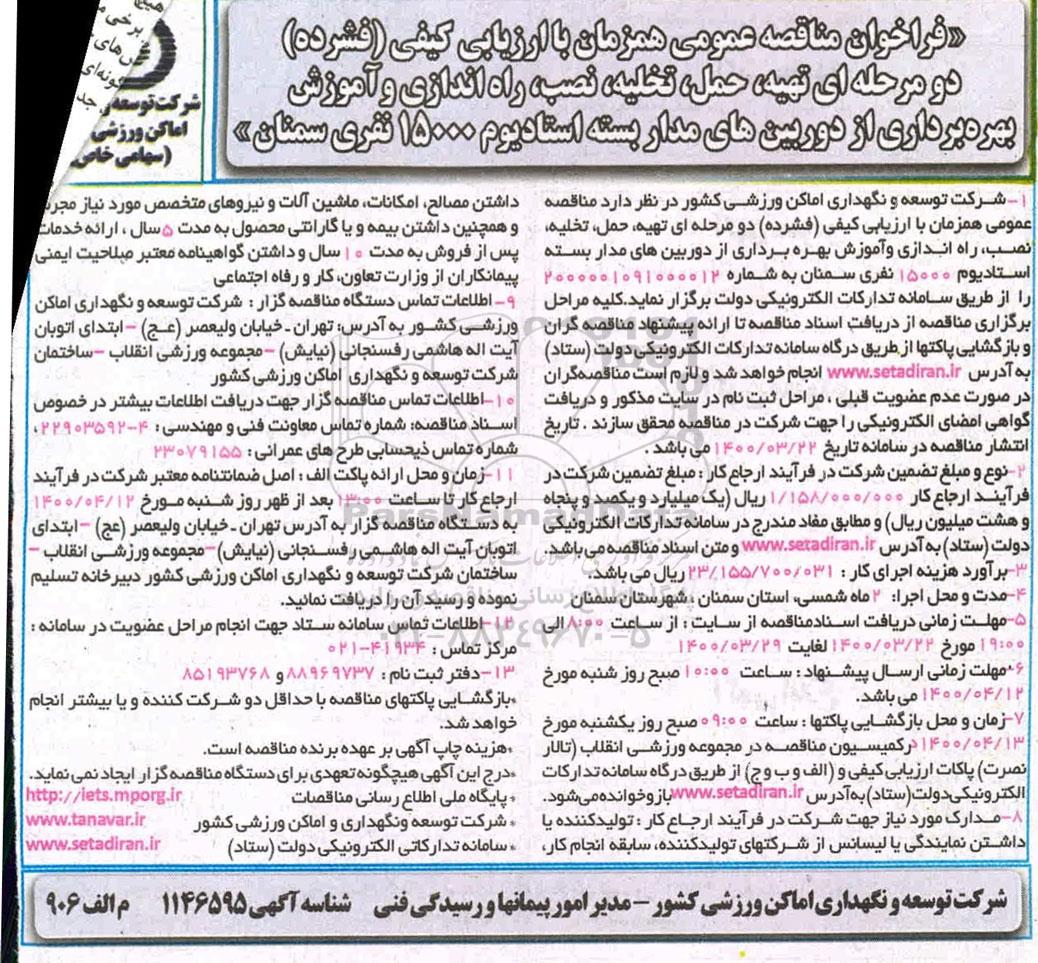 «فراخوان مناقصه عمومی همزمان با ارزیابی کیفی (فشرده)
دو مرحله ای تهیه، حمل، تخلیه، نصب، راه اندازی و آموزش
بهره‌برداری از دوربین های مدار بسته استادیوم ۱۵۰۰۰ نفری سمنان»
شرکت توسعه و
اماکن ورزشی
(سهامی خاص)
۱-شرکت توسعه و نگهداری اماکن ورزشی کشور در نظر دارد مناقصه
عمومی همزمان با ارزیابی کیفی (فشرده) دو مرحله ای تهیه، حمل، تخلیه،
نصب، راه اندازی وآموزش بهره برداری از دوربین های مدار بسته
استادیوم ۱۵۰۰۰ نفری سمنان به شماره ۲۰۰۰۰۰۱۰۹۱۰۰۰۰۱۲
را از طریق سامانه تدارکات الکترونیکی دولت برگزار نماید.کلیه مراحل
برگزاری مناقصه از دریافت اسناد مناقصه تا ارائه پیشنهاد مناقصه گران
و بازگشایی پاکتها از طریق درگاه سامانه تدارکات الکترونیکی دولت (ستاد)
به آدرس www.setadiran.ir انجام خواهد شد و لازم است مناقصه‌گران
در صورت عدم عضویت قبلی ، مراحل ثبت نام در سایت مذکور و دریافت
گواهی امضای الکترونیکی را جهت شرکت در مناقصه محقق سازند . تاریخ
انتشار مناقصه در سامانه تاریخ ۱۴۰۰/۰۳/۲۲ می باشد .
۲-نوع و مبلغ تضمین شرکت در فرآیند ارجاع کار : مبلغ تضمین شرکت در
فرآیند ارجاع کار ۱/۱۵۸/۰۰۰/۰۰۰ ریال (یک میلیارد و یکصد و پنجاه
و هشت میلیون ریال) و مطابق مفاد مندرج در سامانه تدارکات الکترونیکی
دولت (ستاد) به آدرس www.setadiran.ir و متن اسناد مناقصه می‌باشد.
۳-برآورد هزینه اجرای کار : ۲۳/۱۵۵/۷۰۰/۰۳۱ ریال می باشد.
۴-مدت و محل اجرا: ۲ ماه شمسی، استان سمنان ، شهرستان سمنان
۵-مهلت زمانی دریافت اسنادمناقصه از سایت : از ساعت ۸:۰۰ الی
۱۹:۰۰ مورخ ۱۴۰۰/۰۳/۲۲ لغایت ۱۴۰۰/۰۳/۲۹
۶-مهلت زمانی ارسال پیشنهاد : ساعت ۱۰:۰۰ صبح روز شنبه مورخ
۱۴۰۰/۰۴/۱۲ می باشد.
۷-زمان و محل بازگشایی پاکتها : ساعت ۰۹:۰۰ صبح روز یکشنبه مورخ
۱۴۰۰/۰۴/۱۳ درکمیسیون مناقصه در مجموعه ورزشی انقلاب (تالار
نصرت) پاکات ارزیابی کیفی و (الف و ب و ج) از طریق درگاه سامانه تدارکات
الکترونیکی دولت (ستاد) به آدرس www.setadiran.ir باز و خوانده می‌شود.
۸-مدارک مورد نیاز جهت شرکت در فرآیند ارجاع کار : تولیدکننده یا
داشتن نمایندگی یا لیسانس از شرکتهای تولیدکننده، سابقه انجام کار،
داشتن مصالح، امکانات، ماشین آلات و نیروهای متخصص مورد نیاز مجرب
و همچنین داشتن بیمه و یا گارانتی محصول به مدت ۵ سال ، ارائه خدمات
پس از فروش به مدت ۱۰ سال و داشتن گواهینامه معتبر صلاحیت ایمنی
پیمانکاران از وزارت تعاون، کار و رفاه اجتماعی
۹-اطلاعات تماس دستگاه مناقصه گزار : شرکت توسعه و نگهداری اماکن
ورزشی کشور به آدرس: تهران ـ خیابان ولیعصر (عج) –ابتدای اتوبان
آیت اله هاشمی رفسنجانی (نیایش) –مجموعه ورزشی انقلاب –ساختمان
شرکت توسعه و نگهداری اماکن ورزشی کشور
۱۰-اطلاعات تماس مناقصه گزار جهت دریافت اطلاعات بیشتر در خصوص
اسناد مناقصه: شماره تماس معاونت فنی و مهندسی : ۴-۲۲۹۰۳۵۹۲ ،
شماره تماس ذیحسابی طرح های عمرانی : ۲۳۰۷۹۱۵۵
۱۱-زمان و محل ارائه پاکت الف : اصل ضمانتنامه معتبر شرکت در فرآیند
ارجاع کار تا ساعت ۱۳:۰۰ بعد از ظهر روز شنبه مورخ ۱۴۰۰/۰۴/۱۲
به دستگاه مناقصه گزار به آدرس تهران ـ خیابان ولیعصر (عج) –ابتدای
اتوبان آیت اله هاشمی رفسنجانی (نیایش)–مجموعه ورزشی انقلاب –
ساختمان شرکت توسعه و نگهداری اماکن ورزشی کشور دبیرخانه تسلیم
نموده و رسید آن را دریافت نمائید.
۱۲-اطلاعات تماس سامانه ستاد جهت انجام مراحل عضویت در سامانه :
مرکز تماس : ۴۱۹۳۴-۰۲۱
۱۳-دفتر ثبت نام : ۸۸۹۶۹۷۳۷ و ۸۵۱۹۳۷۶۸
*بازگشایی پاکتهای مناقصه با حداقل دو شرکت کننده و یا بیشتر انجام
خواهد شد.
*هزینه چاپ آگهی بر عهده برنده مناقصه است.
*درج این آگهی هیچگونه تعهدی برای دستگاه مناقصه گزار ایجاد نمی نماید.
* پایگاه ملی اطلاع رسانی مناقصات http://iets.mporg.ir
* شرکت توسعه ونگهداری و اماکن ورزشی کشور www.tanavar.ir
* سامانه تدارکاتی الکترونیکی دولت (ستاد) www.setadiran.ir
شرکت توسعه و نگهداری اماکن ورزشی کشور – مدیر امور پیمانها و رسیدگی فنی شناسه آگهی ۱۱۴۶۵۹۵ م الف ۹۰۶
ParsNamadData
۰۲۱-۸۸۳۴۹۶۷۰-۵